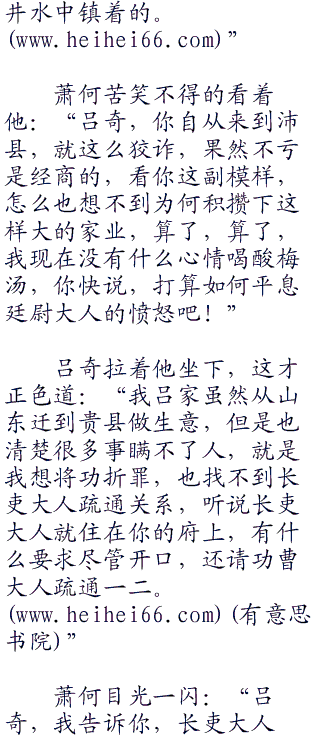 井水中镇着的。
(www.heihei66.com)”
萧何苦笑不得的看着
他：“吕奇，你自从来到沛
县，就这么狡诈，果然不亏
是经商的，看你这副模样，
怎么也想不到为何积攒下这
样大的家业，算了，算了，
我现在没有什么心情喝酸梅
汤，你快说，打算如何平息
廷尉大人的愤怒吧！”
吕奇拉着他坐下，这才
正色道：“我吕家虽然从山
东迁到贵县做生意，但是也
清楚很多事瞒不了人，就是
我想将功折罪，也找不到长
吏大人疏通关系，听说长吏
大人就住在你的府上，有什
么要求尽管开口，还请功曹
大人疏通一二。
(www.heihei66.com)(有意思
书院)”
萧何目光一闪：“吕
奇，我告诉你，长吏大人